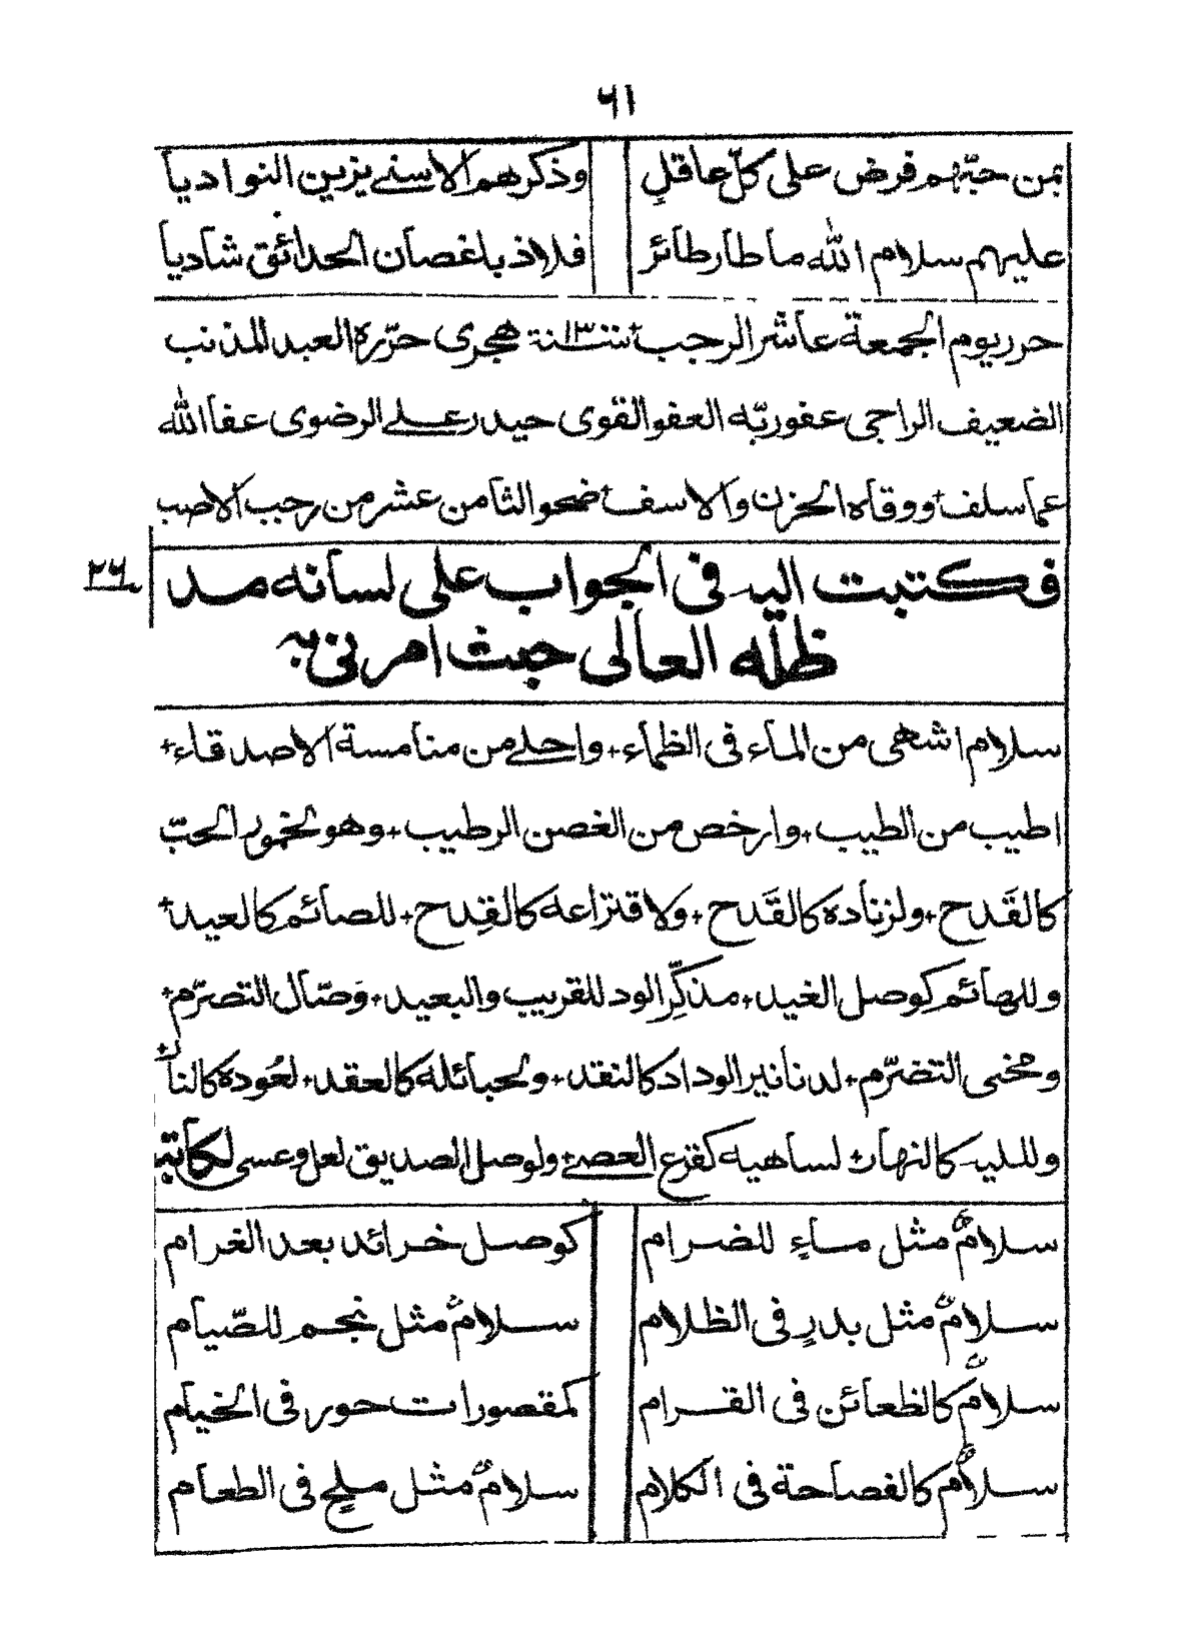 ٦١
بمن حبّهم فرض على كلّ عاقلٍ وذكرهم الاسنى يزين النواديا
عليهم سلام الله ما طار طائر فلاذ باغصان الحدائق شاديا
حرر يوم الجمعة عاشر الرجب سنة هجرى حرّره العبد المذنب
الضعيف الراجى عفو ربّه العفو القوى حيدر على الرضوى عفا الله
عما سلف + ووقاه الحزن والاسف + ضحو الثامن عشر من رجب الاصب
٢٦
فكتبت اليه فى الجواب على لسانه مد
ظلّه العالى حيث امرنى به
سلام اشهى من الماء فى الظماء + واحلى من منامسة الاصدقاء +
اطيب من الطيب + وارخص من الغصن الرطيب + وهو لخمور الحبّ
كالقَدح + ولزناده كالقَدح + ولاقتراعه كالقِدح + للصائم كالعيد +
وللهائم كوصل الغيد + مذكِّر الود للقريب والبعيد + وَصّال التصرّم +
ومخبى التضرّم + لدنانير الوداد كالنقد + ولحبائله كالعقد + لعُوده كالنار +
ولليله كالنهار + لساهيه كقرع العصى + ولوصل الصديق لعل وعسى لكاتبه
سلامٌ مثل ماءٍ للضرام كوصل خرائد بعد الغرام
سلامٌ مثل بدرٍ فى الظلام سلامٌ مثل نجم للصّيام
سلامٌ كالظعائن فى القرام كمقصورات حور فى الخيام
سلامٌ كالفصاحة فى الكلام سلامٌ مثل ملحٍ فى الطعام